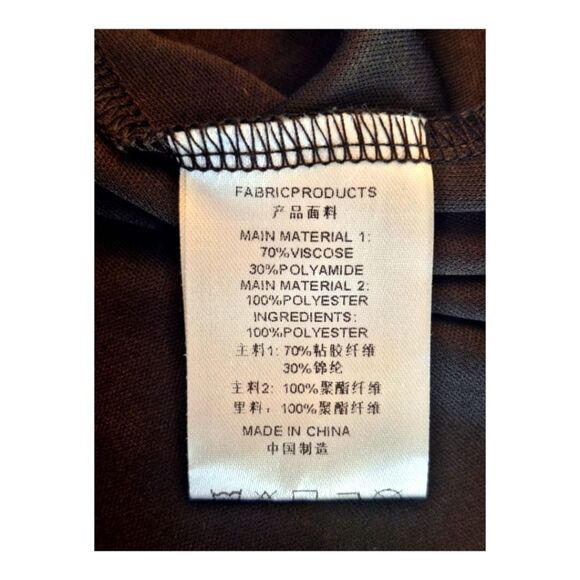 FABRICPRODUCTS
产品面料
MAIN MATERIAL 1:
70%VISCOSE
30%POLYAMIDE
MAIN MATERIAL 2:
100%POLYESTER
INGREDIENTS:
100%POLYESTER
主料1: 70%粘胶纤维
30%锦纶
主料2: 100%聚酯纤维
里料: 100%聚酯纤维
MADE IN CHINA
中国制造